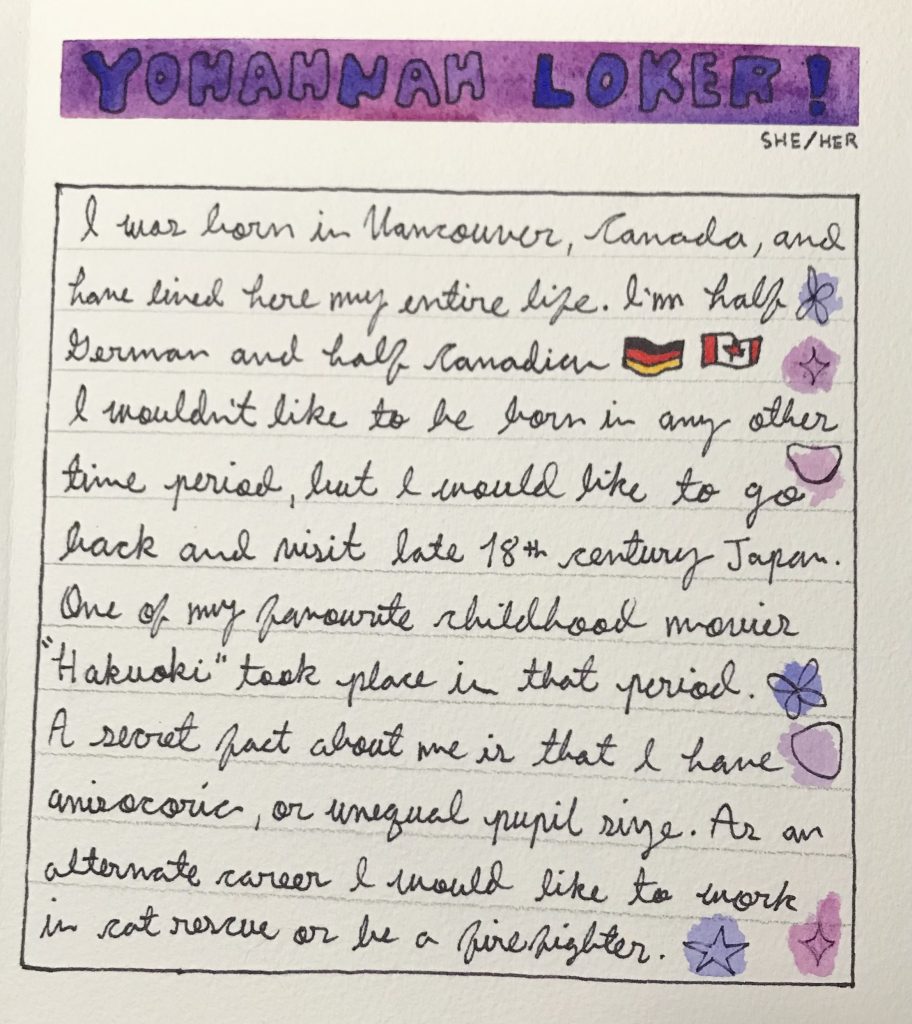 YOHAHNAH LOKER!
SHE/HER
I was born in Vancouver, Canada, and
have lived here my entire life. I'm half
German and half Canadian
I wouldn't like to be born in any other
time period, but I would like to go
back and visit late 18th century Japan.
One of my favourite childhood movies
"Hakuoki" took place in that period.
A secret fact about me is that I have
anisocoric, or unequal pupil size. As an
alternate career I would like to work
in cat rescue or be a firefighter.